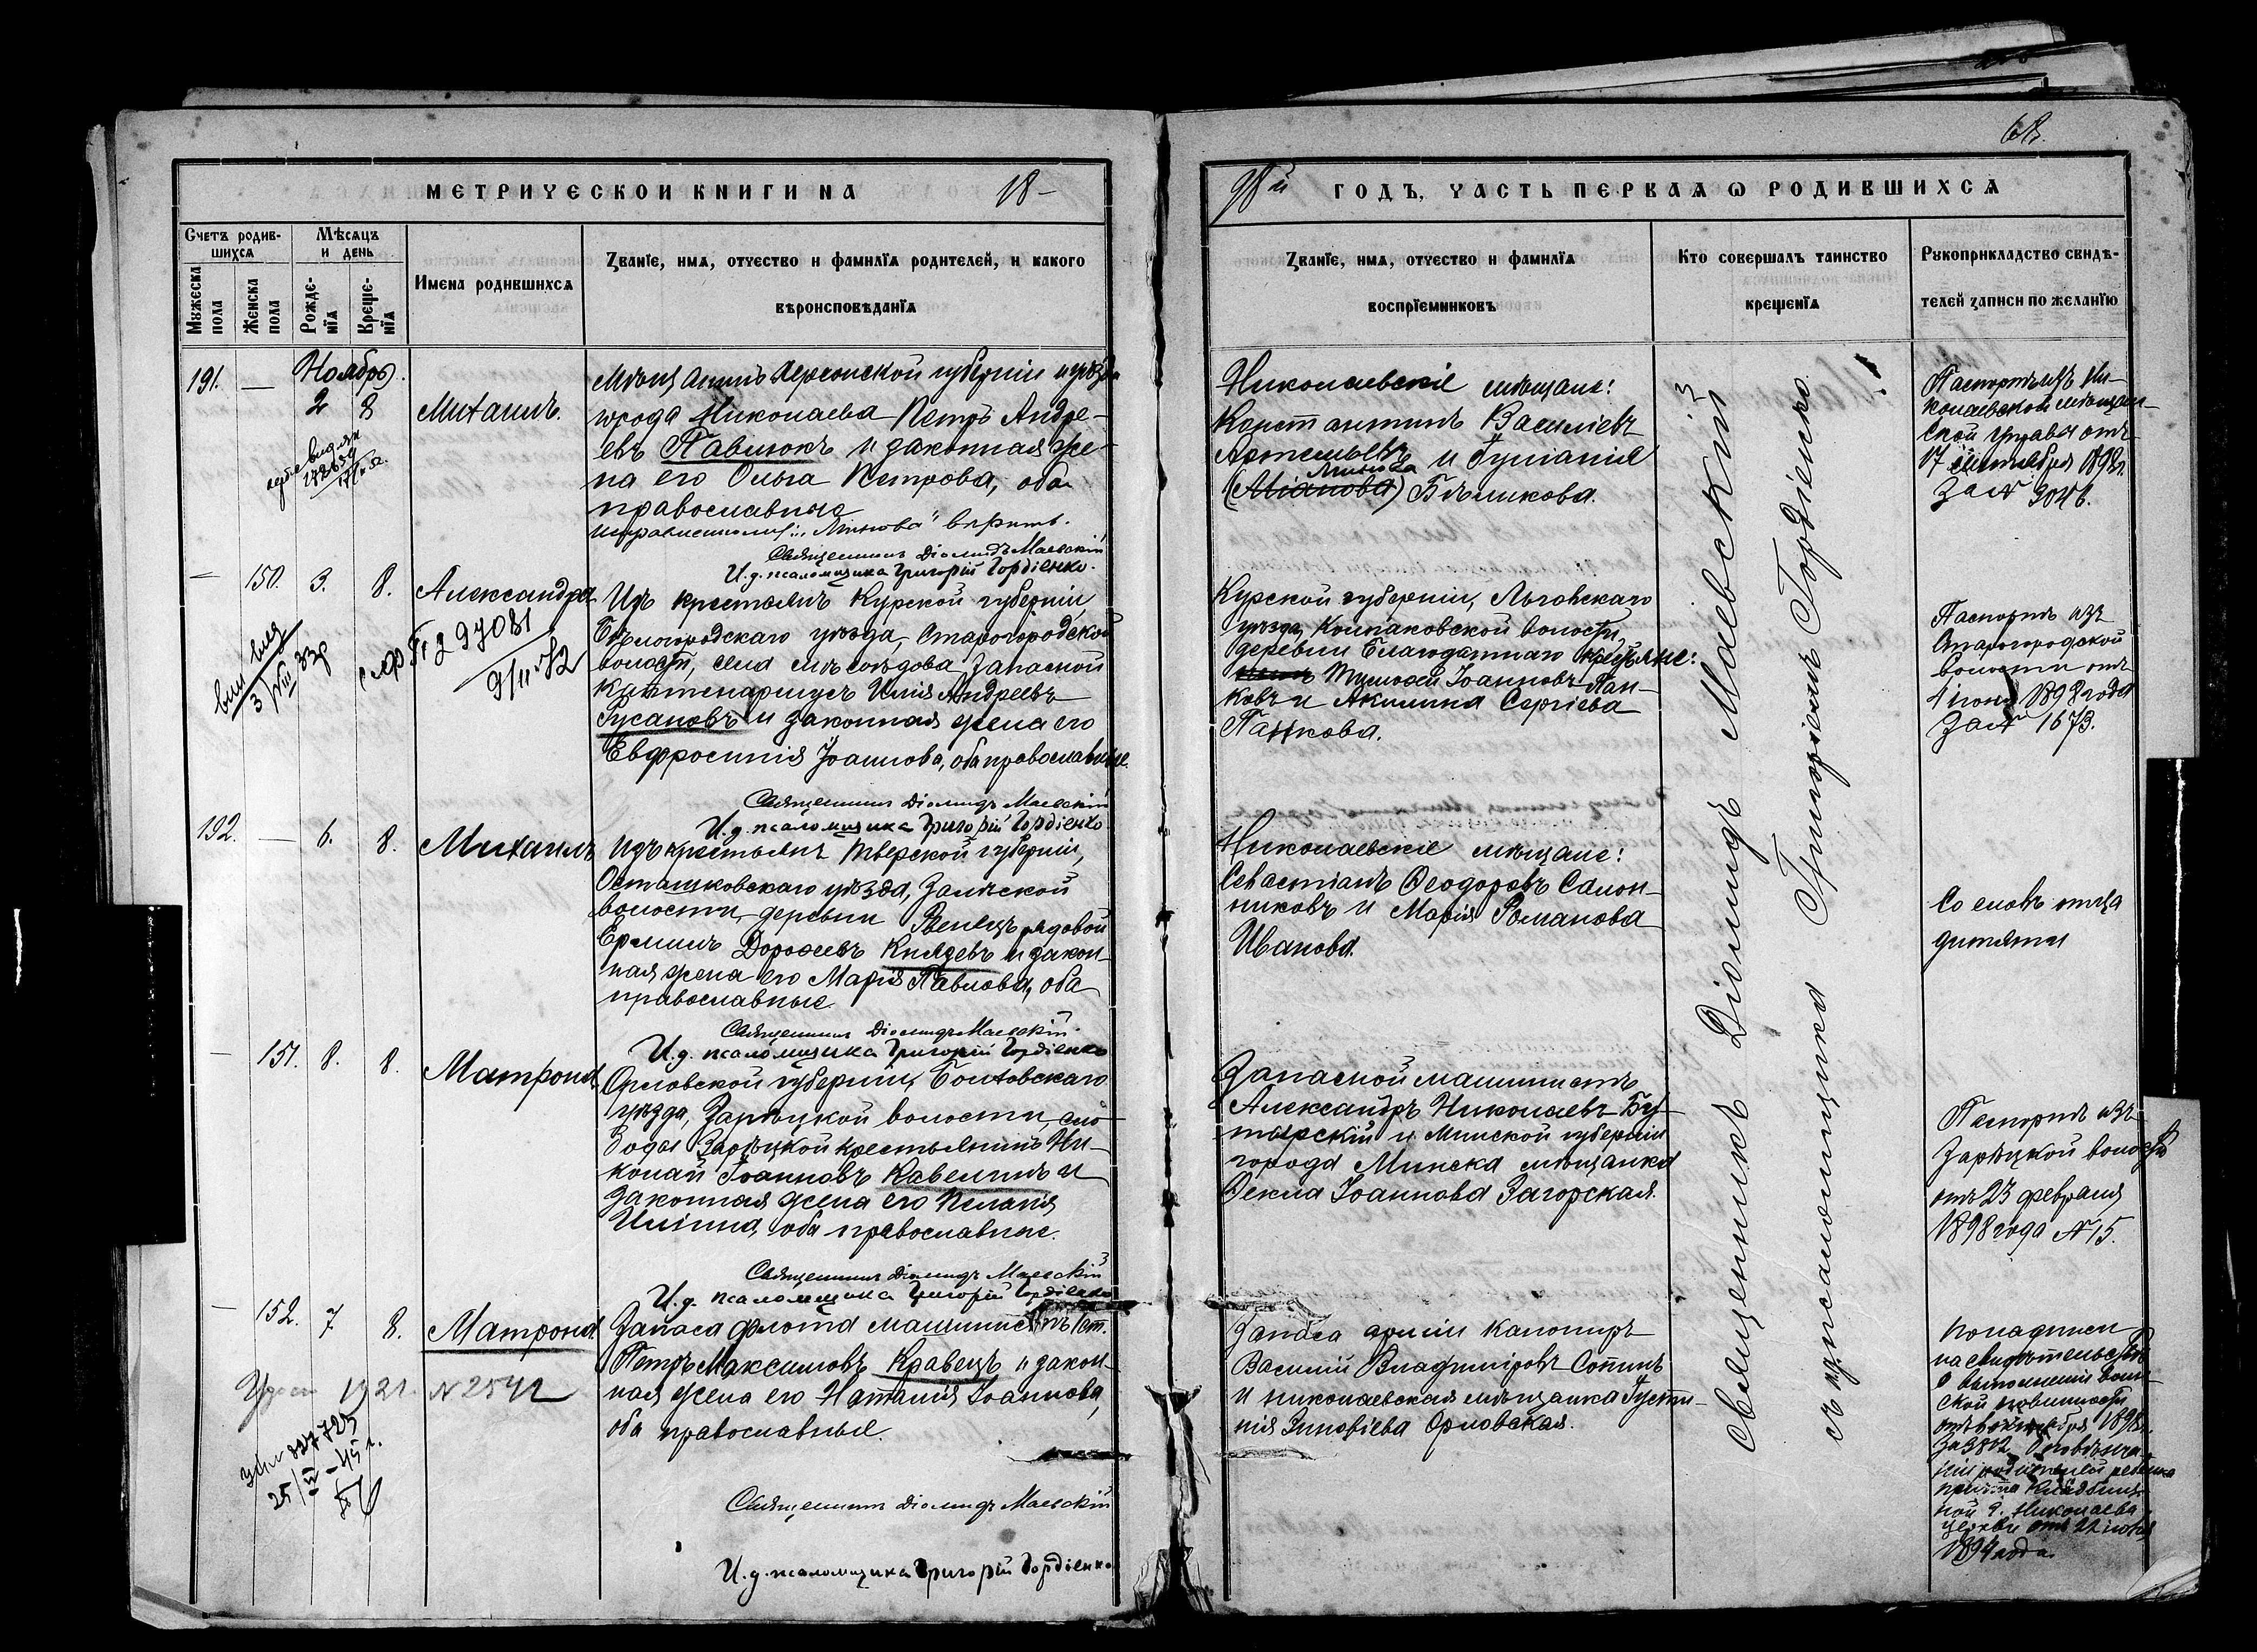 68.
МЕТРИЧЕСКОЙ КНИГИ НА 18-
98й ГОДЪ, ЧАСТЬ ПЕРВАѦ Ѡ РОДИВШИХСѦ
Счетъ родив-
шихсѧ
Мѣсѧцъ
и день
Мꙋжеска
пола
Женска
пола
Рожде-
нїѧ
Креще-
нїѧ
Имена родившихсѧ
Званїе, имѧ, отчество и фамилїѧ родителей, и какого
вѣроисповѣданїѧ
Званїе, имѧ, отчество и фамилїѧ
воспрїемниковъ
Кто совершалъ таинство
крещенїѧ
Рꙋкоприкладство свидѣ-
телей записи по желанїю
191. —
Ноябрь.
2 8
Михаилъ.
Мѣщанинъ Херсонской губерніи и уѣзда
города Николаева Петръ Андре-
евъ Павлюкъ и законная же-
на его Ольга Петрова, оба
православные
исправленному: „Льнова" вѣрить.
Священникъ Діомидъ Маевскій
И. д. псаломщика Григорій Гордіенко.
Николаевскіе мѣщане:
Константинъ Василіевъ
Артемьевъ и Іуліанія
Бѣликова.
Паспортъ изъ Ни-
колаевской мѣщан-
ской управы отъ
17 сентября 1898 г.
за № 3046.
— 150. 3. 8.
Александра
297081
9/II 72
Изъ крестьянъ Курской губерніи,
Бѣлогородскаго уѣзда, Старогородской
волости, села Мясоѣдова запасной
каптенармусъ Илія Андреевъ
Русановъ и законная жена его
Евфросинія Іоаннова, оба православные.
Священникъ Діомидъ Маевскій
И. д. псаломщика Григорій Гордіенко
Курской губерніи, Льговскаго
уѣзда, Колпаковской волости,
деревни Благодатнаго крестьяне:
Тимофей Іоанновъ Пан-
ковъ и Акилина Сергіева
Панкова.
Паспортъ изъ
Старогородской
волости отъ
1898 года
за № 1673.
192. — 6. 8.
Михаилъ
Изъ крестьянъ Тверской губерніи,
Осташковскаго уѣзда,
волости, деревни рядовой
Ермилъ Дорофеевъ Князевъ и закон-
ная жена его Марія Павлова, оба
православные
Священникъ Діомидъ Маевскій
И. д. псаломщика Григорій Гордіенко
Николаевскіе мѣщане:
Севастіанъ Ѳеодоровъ Салон-
никовъ и Марія Романова
Иванова.
Со словъ отца
дитяти
— 151. 8. 8.
Матрона
Орловской губерніи, Болховскаго
уѣзда, Зарѣцкой волости, сло-
боды Зарѣцкой крестьянинъ Ни-
колай Іоанновъ Кавелинъ и
законная жена его Пелагія
Иліина, оба православные.
Священникъ Діомидъ Маевскій
И. д. псаломщика Григорій Гордіенко
Запасной машинистъ
Александръ Николаевъ Бу-
тырскій и Минской губерніи
города Минска мѣщанка
Ѳекла Іоаннова Загорская.
Паспортъ изъ
Зарѣцкой волости
отъ 23 февраля
1898 года № 15.
— 152. 7 8.
Матрона
1921. № 2542
Запаса флота машинистъ 1 ст.
Петръ Максимовъ Кравецъ и закон-
ная жена его Наталія Іоаннова,
оба православные.
Священникъ Діомидъ Маевскій
И. д. псаломщика Григорій Гордіенко
Запаса арміи канониръ
Василій Владиміровъ Сотинъ
и николаевская мѣщанка Іусти-
нія Зиновіева Орловская.
на свидѣтельствѣ
о выполненіи воин-
ской повинности
г. Николаева
церкви отъ 22
1894 года.
Священникъ Діомидъ Маевскій
съ и. д. псаломщика Григоріемъ Гордіенко.